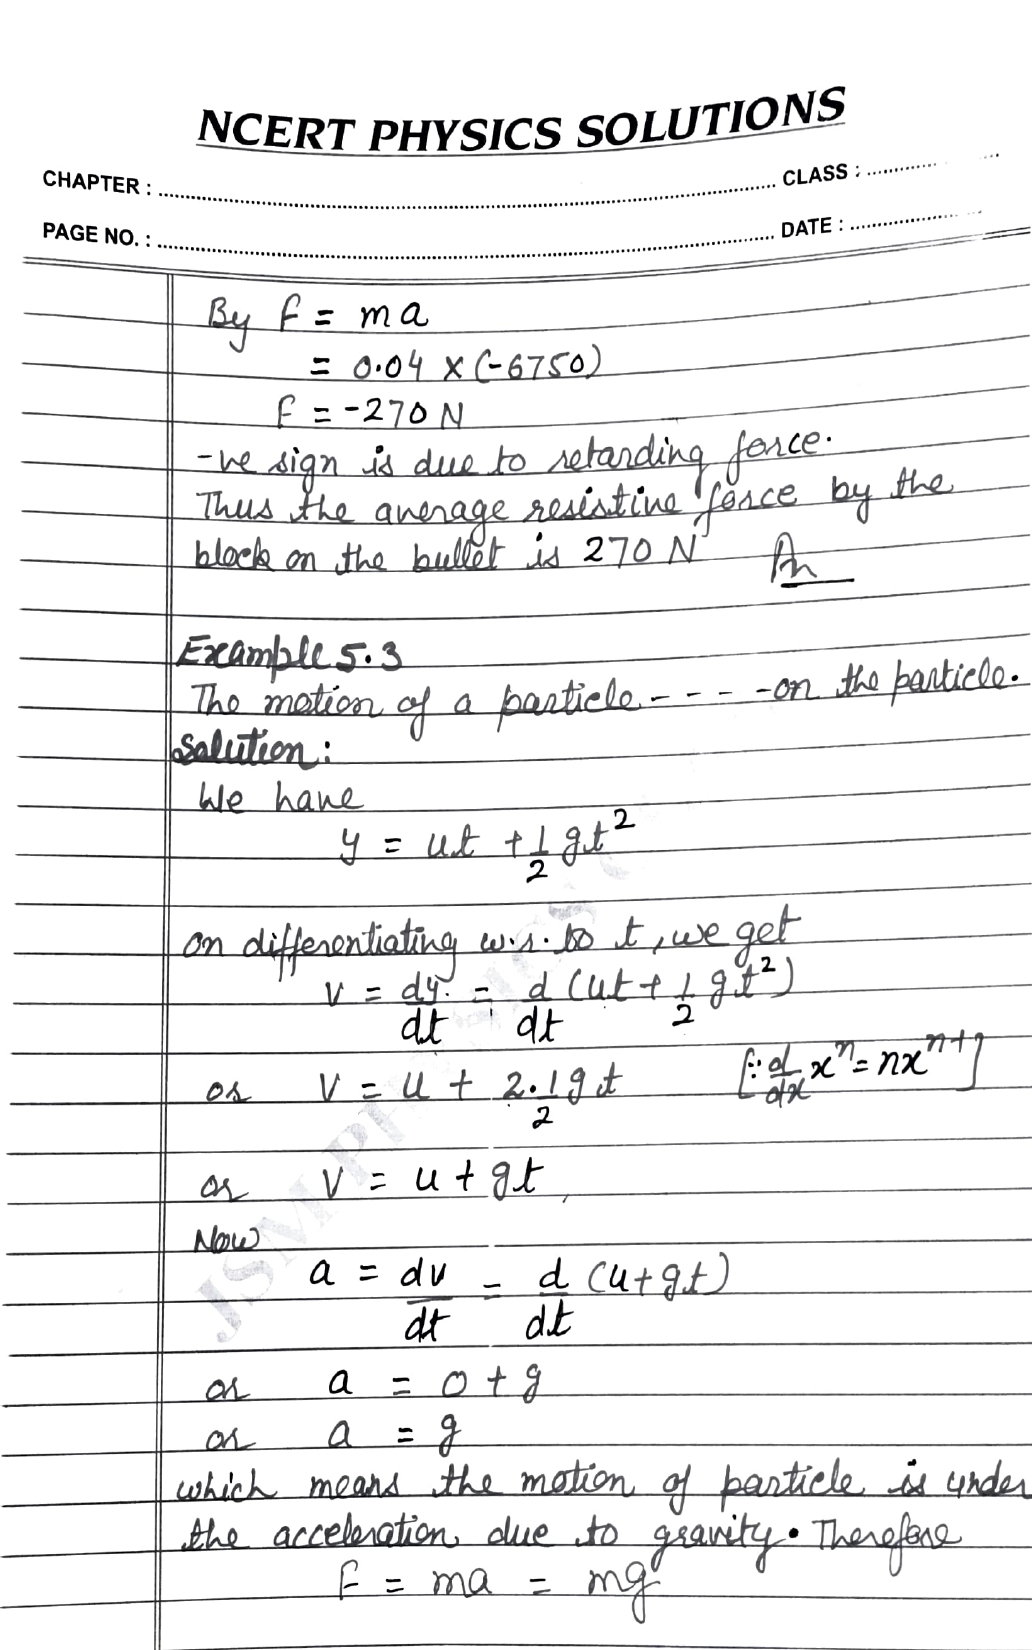 NCERT PHYSICS SOLUTIONS
CHAPTER : ........ CLASS : ........
PAGE NO. : ........ DATE : ........
By F = ma
= 0.04 × (-6750)
F = -270 N
-ve sign is due to retarding force.
Thus the average resistive force by the
block on the bullet is 270 N An
Example 5.3
The motion of a particle - - - - on the particle.
Solution:
We have
y = ut + 1/2 gt²
on differentiating w.r. to t, we get
v = dy/dt = d/dt (ut + 1/2 gt²)
or v = u + 2·1/2 gt [∵ d/dx xⁿ = nxⁿ⁺¹]
or v = u + gt
Now
a = dv/dt = d/dt (u + gt)
or a = 0 + g
or a = g
which means the motion of particle is under
the acceleration due to gravity. Therefore
F = ma = mg
JSM PHYSICS